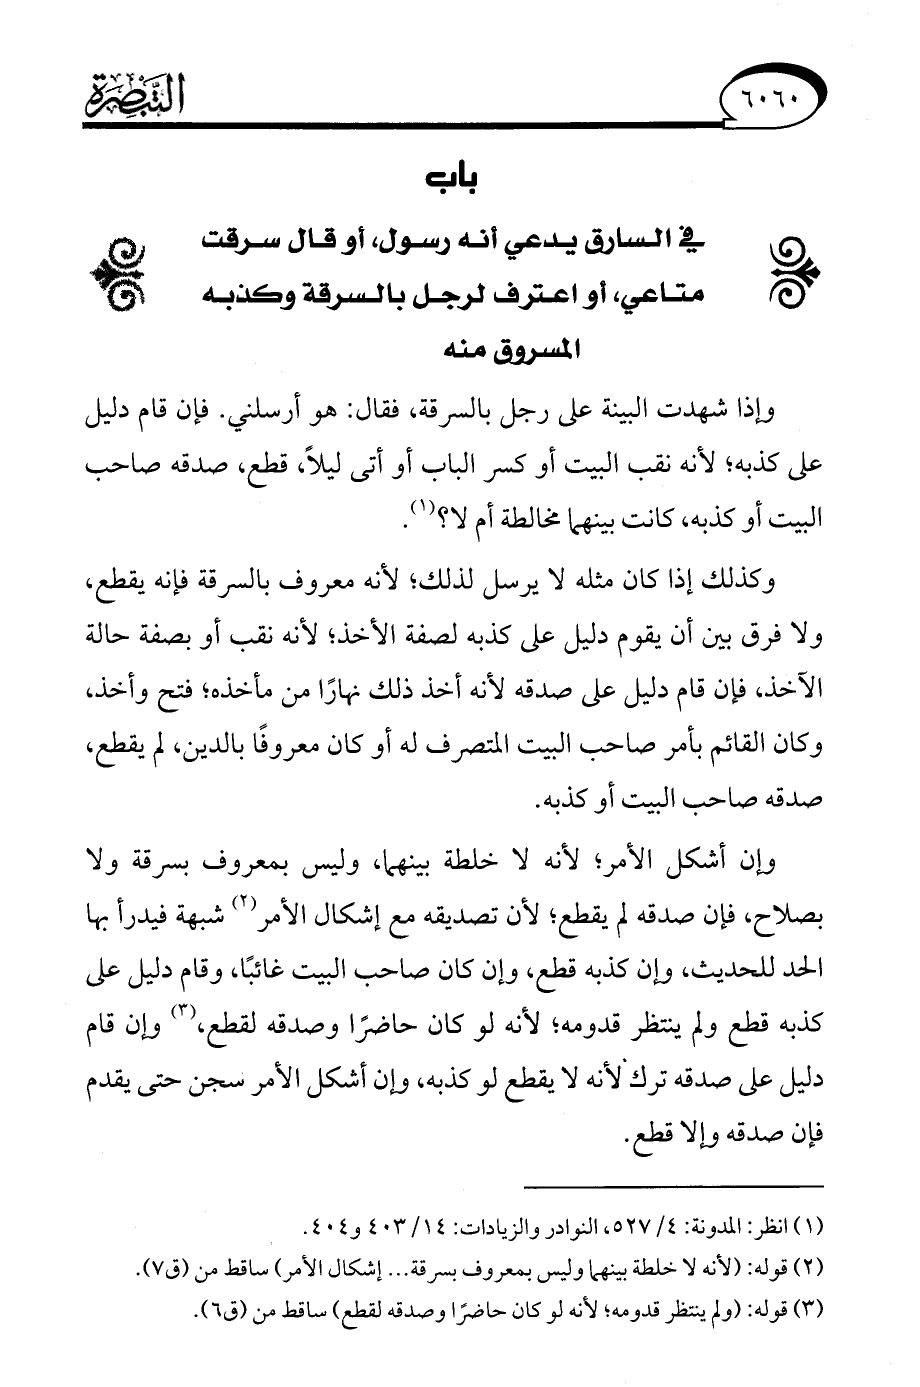 التبصرة
٦٠٦٠
باب
في السارق يدعي أنه رسول، أو قال سرقت
متاعي، أو اعترف لرجل بالسرقة وكذبه
المسروق منه
وإذا شهدت البينة على رجل بالسرقة، فقال: هو أرسلني. فإن قام دليل
على كذبه؛ لأنه نقب البيت أو كسر الباب أو أتى ليلاً، قطع، صدقه صاحب
البيت أو كذبه، كانت بينهما مخالطة أم لا؟(١).
وكذلك إذا كان مثله لا يرسل لذلك؛ لأنه معروف بالسرقة فإنه يقطع،
ولا فرق بين أن يقوم دليل على كذبه لصفة الأخذ؛ لأنه نقب أو بصفة حالة
الآخذ، فإن قام دليل على صدقه لأنه أخذ ذلك نهارًا من مأخذه؛ فتح وأخذ،
وكان القائم بأمر صاحب البيت المتصرف له أو كان معروفًا بالدين، لم يقطع،
صدقه صاحب البيت أو كذبه.
وإن أشكل الأمر؛ لأنه لا خلطة بينهما، وليس بمعروف بسرقة ولا
بصلاح، فإن صدقه لم يقطع؛ لأن تصديقه مع إشكال الأمر(٢) شبهة فيدرأ بها
الحد للحديث، وإن كذبه قطع، وإن كان صاحب البيت غائبًا، وقام دليل على
كذبه قطع ولم ينتظر قدومه؛ لأنه لو كان حاضرًا وصدقه لقطع،(٣) وإن قام
دليل على صدقه ترك لأنه لا يقطع لو كذبه، وإن أشكل الأمر سجن حتى يقدم
فإن صدقه وإلا قطع.
(١) انظر: المدونة: ٤/ ٥٢٧، النوادر والزيادات: ١٤/ ٤٠٣ و٤٠٤.
(٢) قوله: (لأنه لا خلطة بينهما وليس بمعروف بسرقة... إشكال الأمر) ساقط من (ق٧).
(٣) قوله: (ولم ينتظر قدومه؛ لأنه لو كان حاضرًا وصدقه لقطع) ساقط من (ق٦).